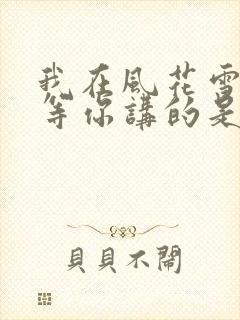 我在風花雪
等你講的是
貝貝不鬧